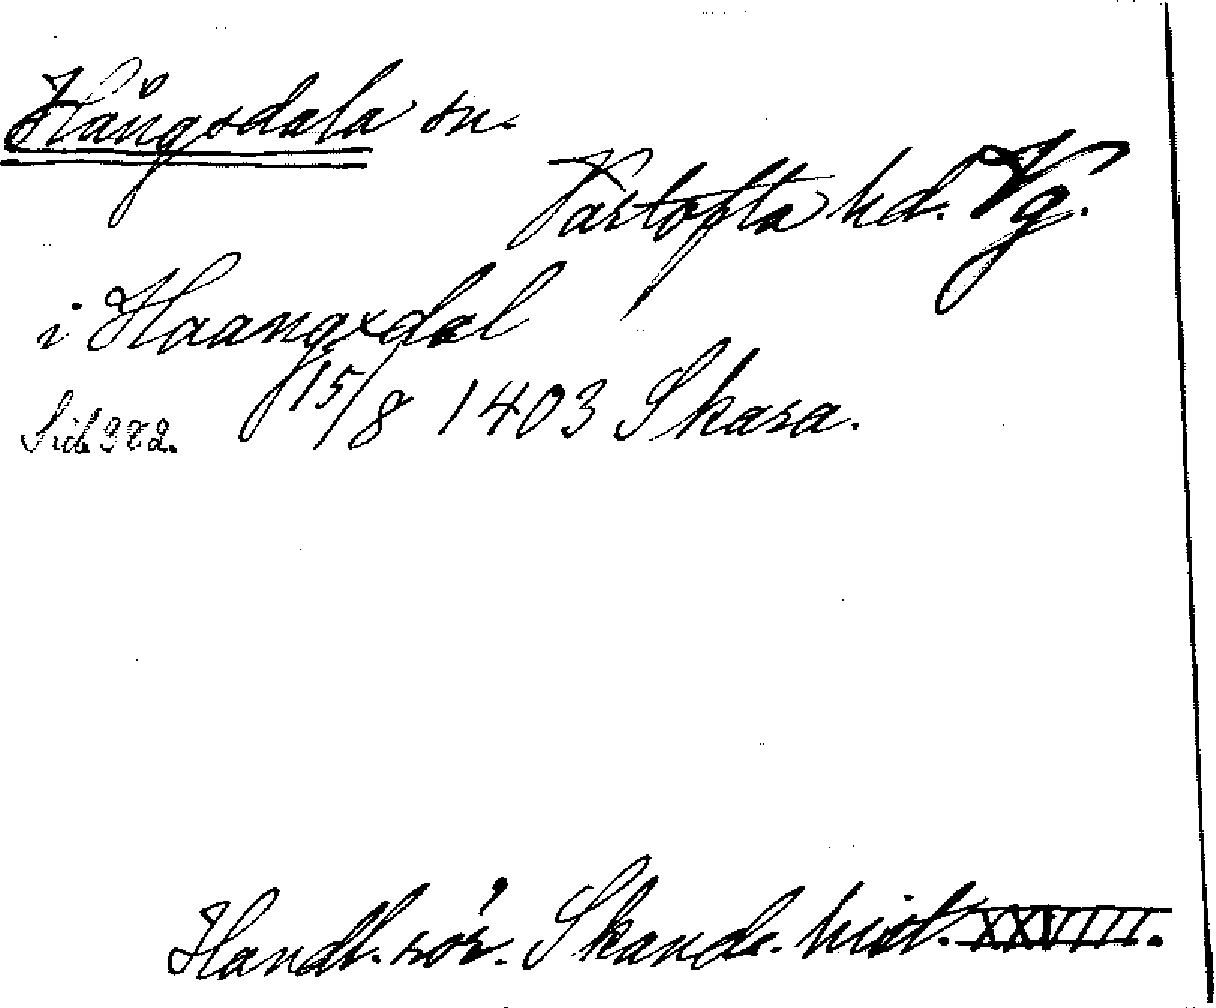 Hångsdala sn.
Vartofta hd. Vg.
i Haangxdal
15/8 1403 Skara.
Sid. 382.
Handl. rör. Skand. hist. XXVIII.